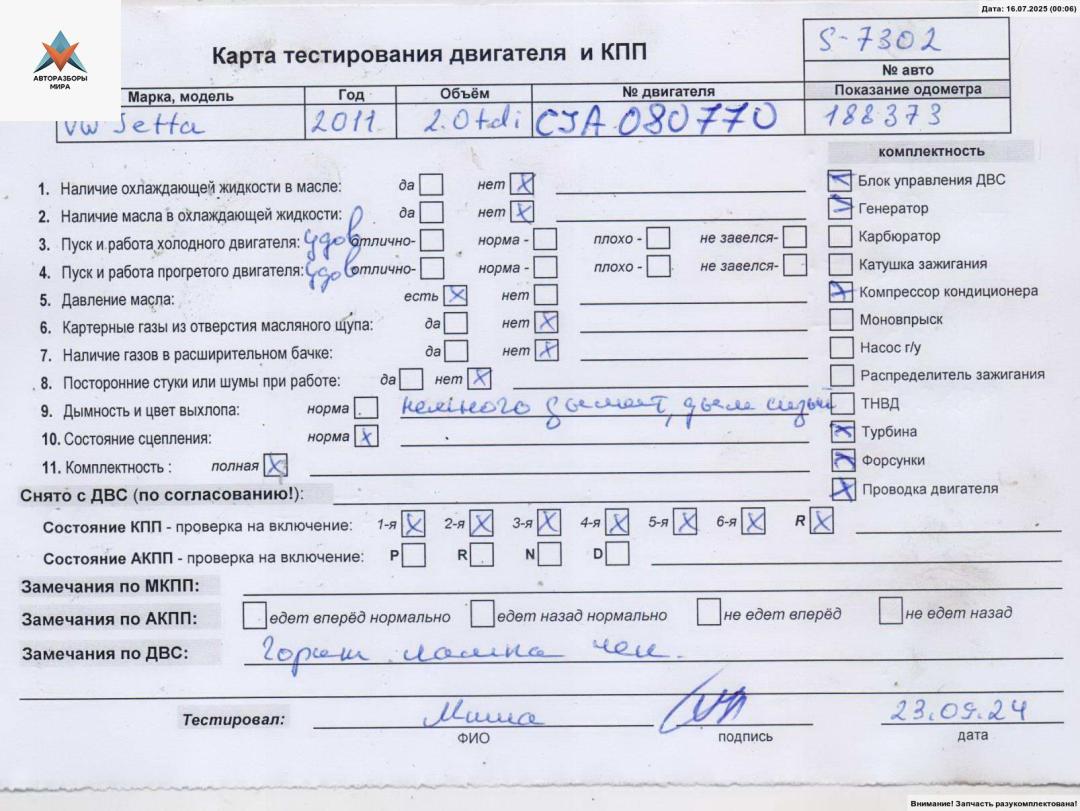 Дата: 16.07.2025 (00:06)
АВТОРАЗБОРЫ
МИРА
Карта тестирования двигателя и КПП
S-7302
№ авто
Марка, модель Год Объём № двигателя Показание одометра
VW Jetta 2011 2.0 tdi CJA 080770 188373
комплектность
1. Наличие охлаждающей жидкости в масле: да нет X
Блок управления ДВС
2. Наличие масла в охлаждающей жидкости: да нет X
Генератор
3. Пуск и работа холодного двигателя: удов отлично- норма - плохо - не завелся-
Карбюратор
4. Пуск и работа прогретого двигателя: удов отлично- норма - плохо - не завелся-
Катушка зажигания
5. Давление масла: есть X нет
Компрессор кондиционера
6. Картерные газы из отверстия масляного щупа: да нет X
Моновпрыск
7. Наличие газов в расширительном бачке: да нет X
Насос г/у
8. Посторонние стуки или шумы при работе: да нет X
Распределитель зажигания
9. Дымность и цвет выхлопа: норма немного дымит, дым сизый
ТНВД
10. Состояние сцепления: норма X
Турбина
11. Комплектность : полная X
Форсунки
Снято с ДВС (по согласованию!):
Проводка двигателя
Состояние КПП - проверка на включение: 1-я X 2-я X 3-я X 4-я X 5-я X 6-я X R X
Состояние АКПП - проверка на включение: P R N D
Замечания по МКПП:
Замечания по АКПП: едет вперёд нормально едет назад нормально не едет вперёд не едет назад
Замечания по ДВС: Горит лампа чек.
Тестировал: Миша 23.09.24
ФИО подпись дата
Внимание! Запчасть разукомплектована!